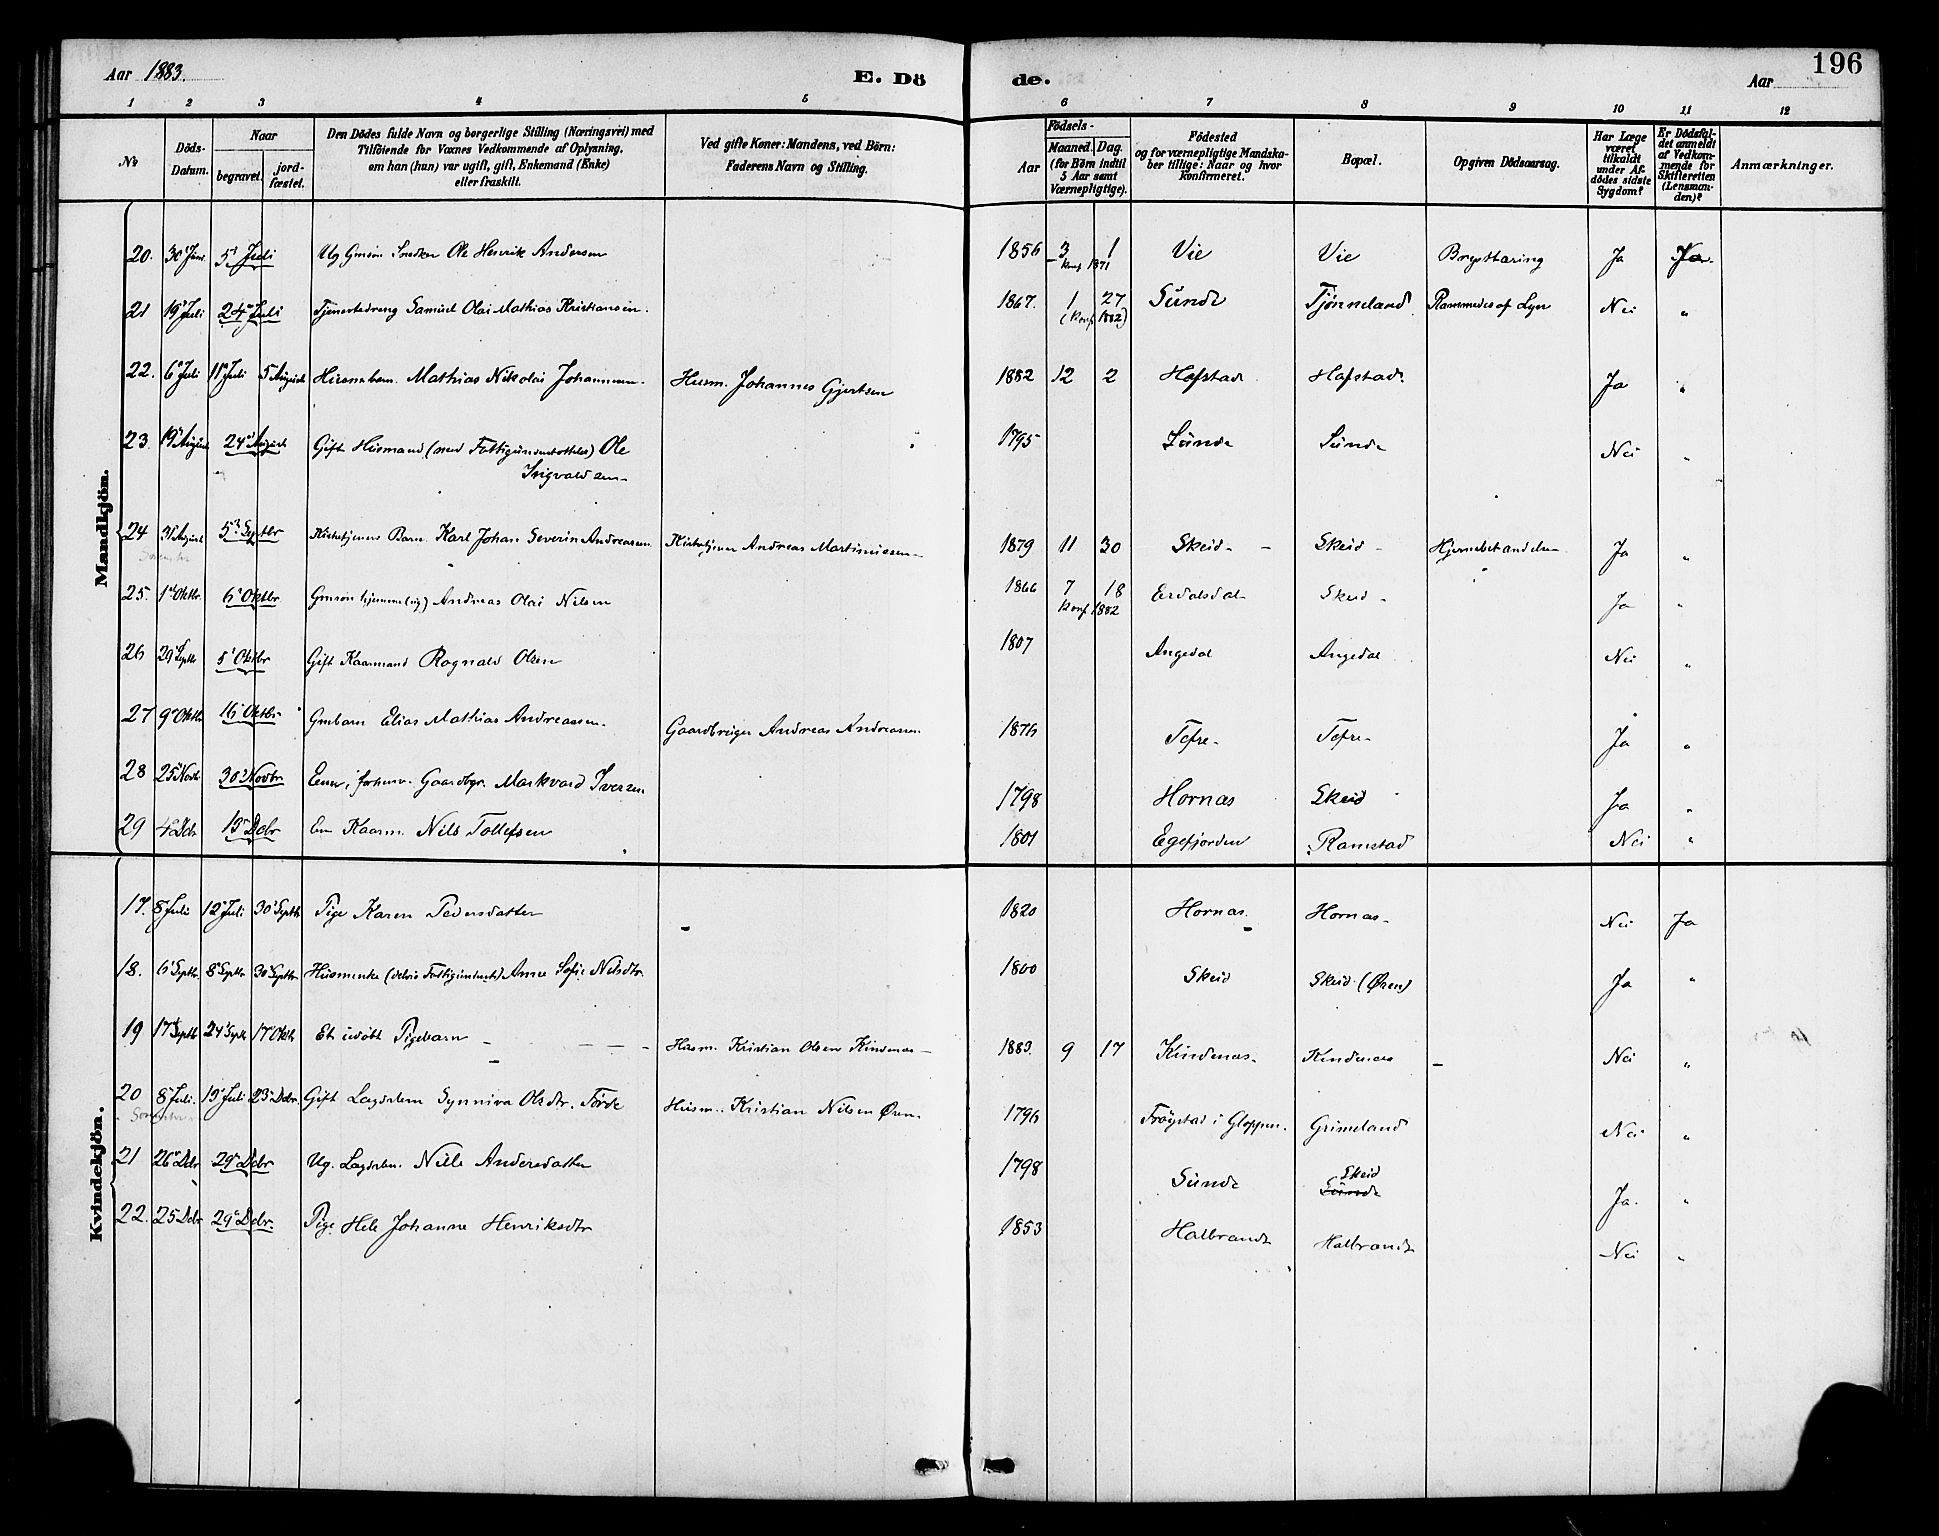 Aar 1883. E. Dö de. Aar 196
1 2 3 4 5 6 7 8 9 10 11 12
No
Döds-Datum.
Naar
begravet.
jord-fæstet.
Den Dödes fulde Navn og borgerlige Stilling (Næringsvei) med
Tilföiende for Voxnes Vedkommende af Oplysning,
om han (hun) var ugift, gift, Enkemand (Enke)
eller fraskilt.
Ved gifte Koner: Mandens, ved Börn:
Faderens Navn og Stilling.
Födsels-
Aar
Maaned. Dag.
(for Börn indtil
5 Aar samt
Værnepligtige).
Födested
og for værnepligtige Mandska-
ber tillige: Naar og hvor
konfirmeret.
Bopæl.
Opgiven Dödsaarsag.
Har Læge
været
tilkaldt
under Af-
dödes sidste
Sygdom?
Er Dödsfal-
det anmeldt
af Vedkom-
mende for
Skifteretten
(Lensman-
den)?
Anmærkninger.
Mandkjön.
20. 30 Juni 5 Juli Ug Gmsön Ole Henrik Andersen 1856 3 1 Vie Vie Brysttæring Ja
Konf 1871
21 19 Juli 24 Juli Tjenestedreng Samuel Olai Mathias Kristiansen. 1867. 1 27 Sunde Tjönneland Rammedes af Lyn Nei "
(Konf 1882)
22. 6 Juli 11 Juli 5 August Mathias Nikolai Johannesen. Husm. Johannes Gjertsen 1882 12 2 Hafstad Hafstad Ja "
23 19 August 24 August Gift Husmand (med Fattigunderstöttelse) Ole 1795 Sunde Sunde Nei "
Sivert
24 31 August 5 Septbr Kirketjeners Barn Karl Johan Severin Andreassen Kirketjener Andreas Martinussen 1879 11 30 Skeid Skeid Ja "
25. 1 Oktbr. 6 Oktbr Gmsön hjemme (ug) Andreas Olai Nilsen 1866 7 18 Erdalsdal Skeid Ja "
Konf 1882
26 29 Septb 5 Oktbr Gift Kaarmand Rognald Olsen 1807 Angedal Angedal Nei "
27 9 Oktbr 16 Oktbr Gmbarn Elias Mathias Andreassen. Gaardbruger Andreas Andreassen. 1876 Tefre Tefre Ja "
28 25 Novb 30 Novbr Gaardbgr. Markvard Iversen 1798 Hornas Skeid Ja "
29 4 Dcb 15 Dcbr Em Kaarm. Nils Tollefsen 1801 Egefjorden Ramstad Nei "
Kvindekjön.
17. 8 Juli 12 Juli 30 Septb Pige Karen Pedersdatter 1820 Hornas. Hornas Nei Ja
18. 6 Septbr 8 Septbr 30 Septbr Husmenke Anne Sofie Nilsdtr 1800 Skeid Skeid (Ören) Ja "
19 17 Septb 24 Septb 17 Oktb Et udöbt Pigebarn Husm. Kristian Olsen Kindenas 1883. 9 17 Kindenas Kindenas Nei "
20 8 Juli. 15 Juli 23 Dcbr. Gift Lagdslem Synniva Olsdtr. Förde Husm. Kristian Nilsen Ören. 1796 Fröystad i Gloppen. Grimeland Nei "
21 26 Dcbr 29 Dcbr Ug. Lagdslem. Nille Andersdatter 1798 Sunde Skeid Ja. "
Sunde
22. 25 Dcbr 29 Dcbr. Pige Johanne Henriksdtr 1853 Halbrandt Halbrandt Nei "